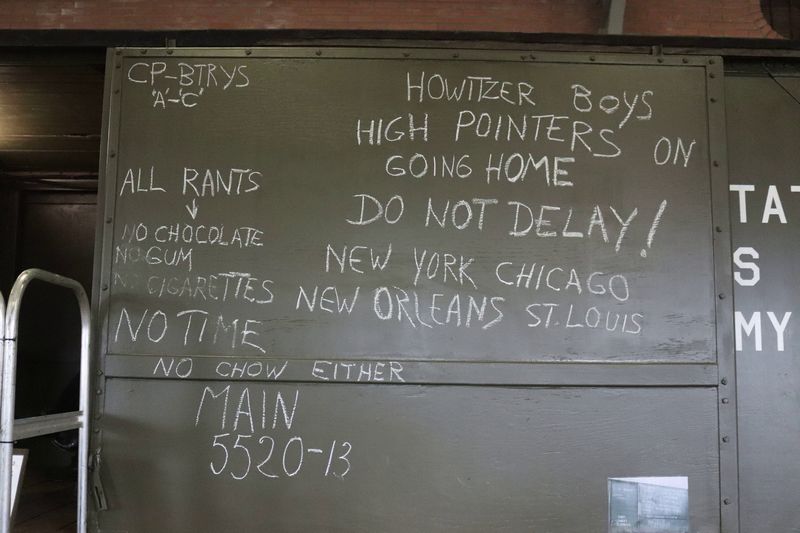 CP-BTRYS
'A'-'C'
ALL RANTS
NO CHOCOLATE
NO GUM
NO CIGARETTES
NO TIME
NO CHOW EITHER
MAIN
5520-13
HOWITZER BOYS
HIGH POINTERS ON
GOING HOME
DO NOT DELAY!
NEW YORK CHICAGO
NEW ORLEANS ST. LOUIS
TAT
S
MY